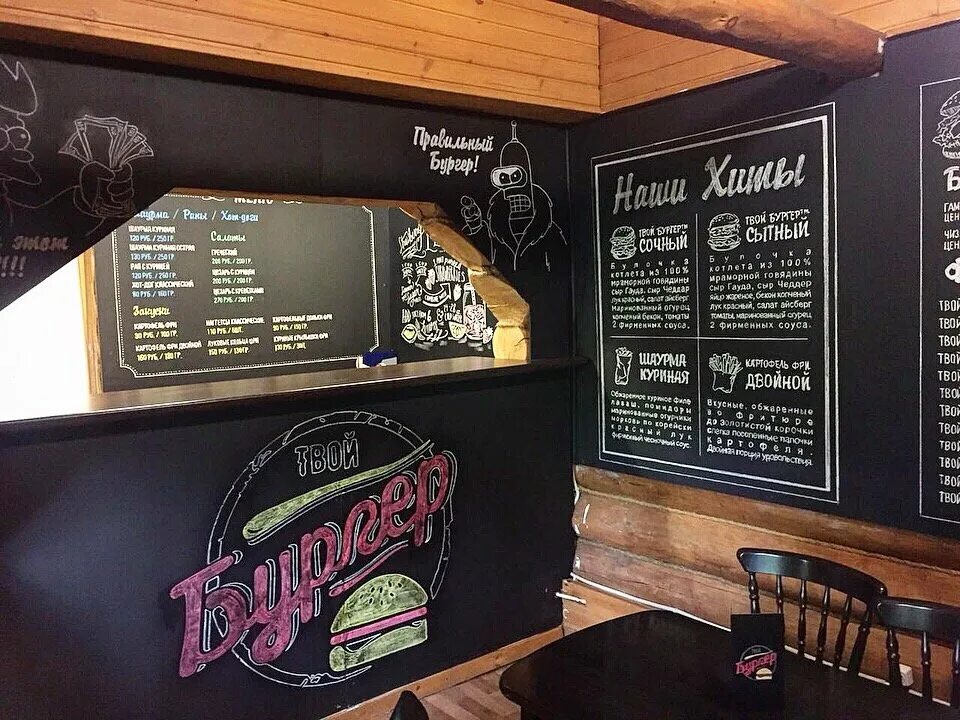 этом
!!!
Правильный
Бургер!
МЕНЮ
Шаурма / Роллы / Хот-доги
ШАУРМА КУРИНАЯ
120 РУБ. / 250 ГР.
ШАУРМА КУРИНАЯ ОСТРАЯ
130 РУБ. / 250 ГР.
120 РУБ. / 250 ГР.
ХОТ-ДОГ КЛАССИЧЕСКИЙ
80 РУБ. / 160 ГР.
Салаты
ГРЕЧЕСКИЙ
200 РУБ. / 200 ГР.
ЦЕЗАРЬ С КУРИЦЕЙ
ЦЕЗАРЬ С КРЕВЕТКАМИ
270 РУБ. / 200 ГР.
Закуски
КАРТОФЕЛЬ ФРИ
90 РУБ. / 100 ГР.
КАРТОФЕЛЬ ФРИ ДВОЙНОЙ
НАГГЕТСЫ КЛАССИЧЕСКИЕ
110 РУБ. / 6ШТ.
ЛУКОВЫЕ КОЛЬЦА ФРИ
КАРТОФЕЛЬНЫЕ ДОЛЬКИ ФРИ
КУРИНЫЕ КРЫЛЫШКИ ФРИ
Наши Хиты
ТВОЙ БУРГЕР™
СОЧНЫЙ
Булочка
котлета из 100%
мраморной говядины
сыр Гауда, сыр Чеддер
лук красный, салат айсберг
Маринованный огурец
копченый бекон, томаты
2 фирменных соуса.
ТВОЙ БУРГЕР™
СЫТНЫЙ
Булочка
котлета из 100%
мраморной говядины
сыр Гауда, сыр Чеддер
яйцо жареное, бекон копченый
лук красный, салат айсберг
томаты, маринованный огурец
2 фирменных соуса.
ШАУРМА
КУРИНАЯ
Обжаренное куриное филе
лаваш, помидоры
маринованные огурчики
морковь по корейски
красный лук
фирменный чесночный соус.
КАРТОФЕЛЬ ФРИ
ДВОЙНОЙ
Вкусные, обжаренные
во фритюре
до золотистой корочки
слегка посоленные палочки
картофеля.
Двойная порция удовольствия.
Б
ГАМ
ЦЕН
ЧИЗ
ЦЕН
ТВОЙ
ТВОЙ
ТВОЙ
ТВОЙ
ТВОЙ
ТВОЙ
ТВОЙ
ТВОЙ
ТВОЙ
ТВОЙ
ТВОЙ
ТВОЙ
Бургер
ТВОЙ
Бургер